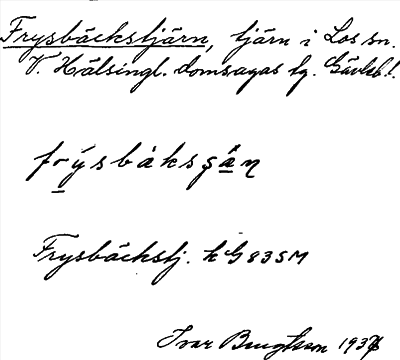 Frysbäckstjärn, tjärn i Los sn.
V. Hälsingl. domsagas tg. Gävleb. l.
frysbäksʂän
Frysbäckstj. k G 83 SM
Ivar Bengtsson 1937